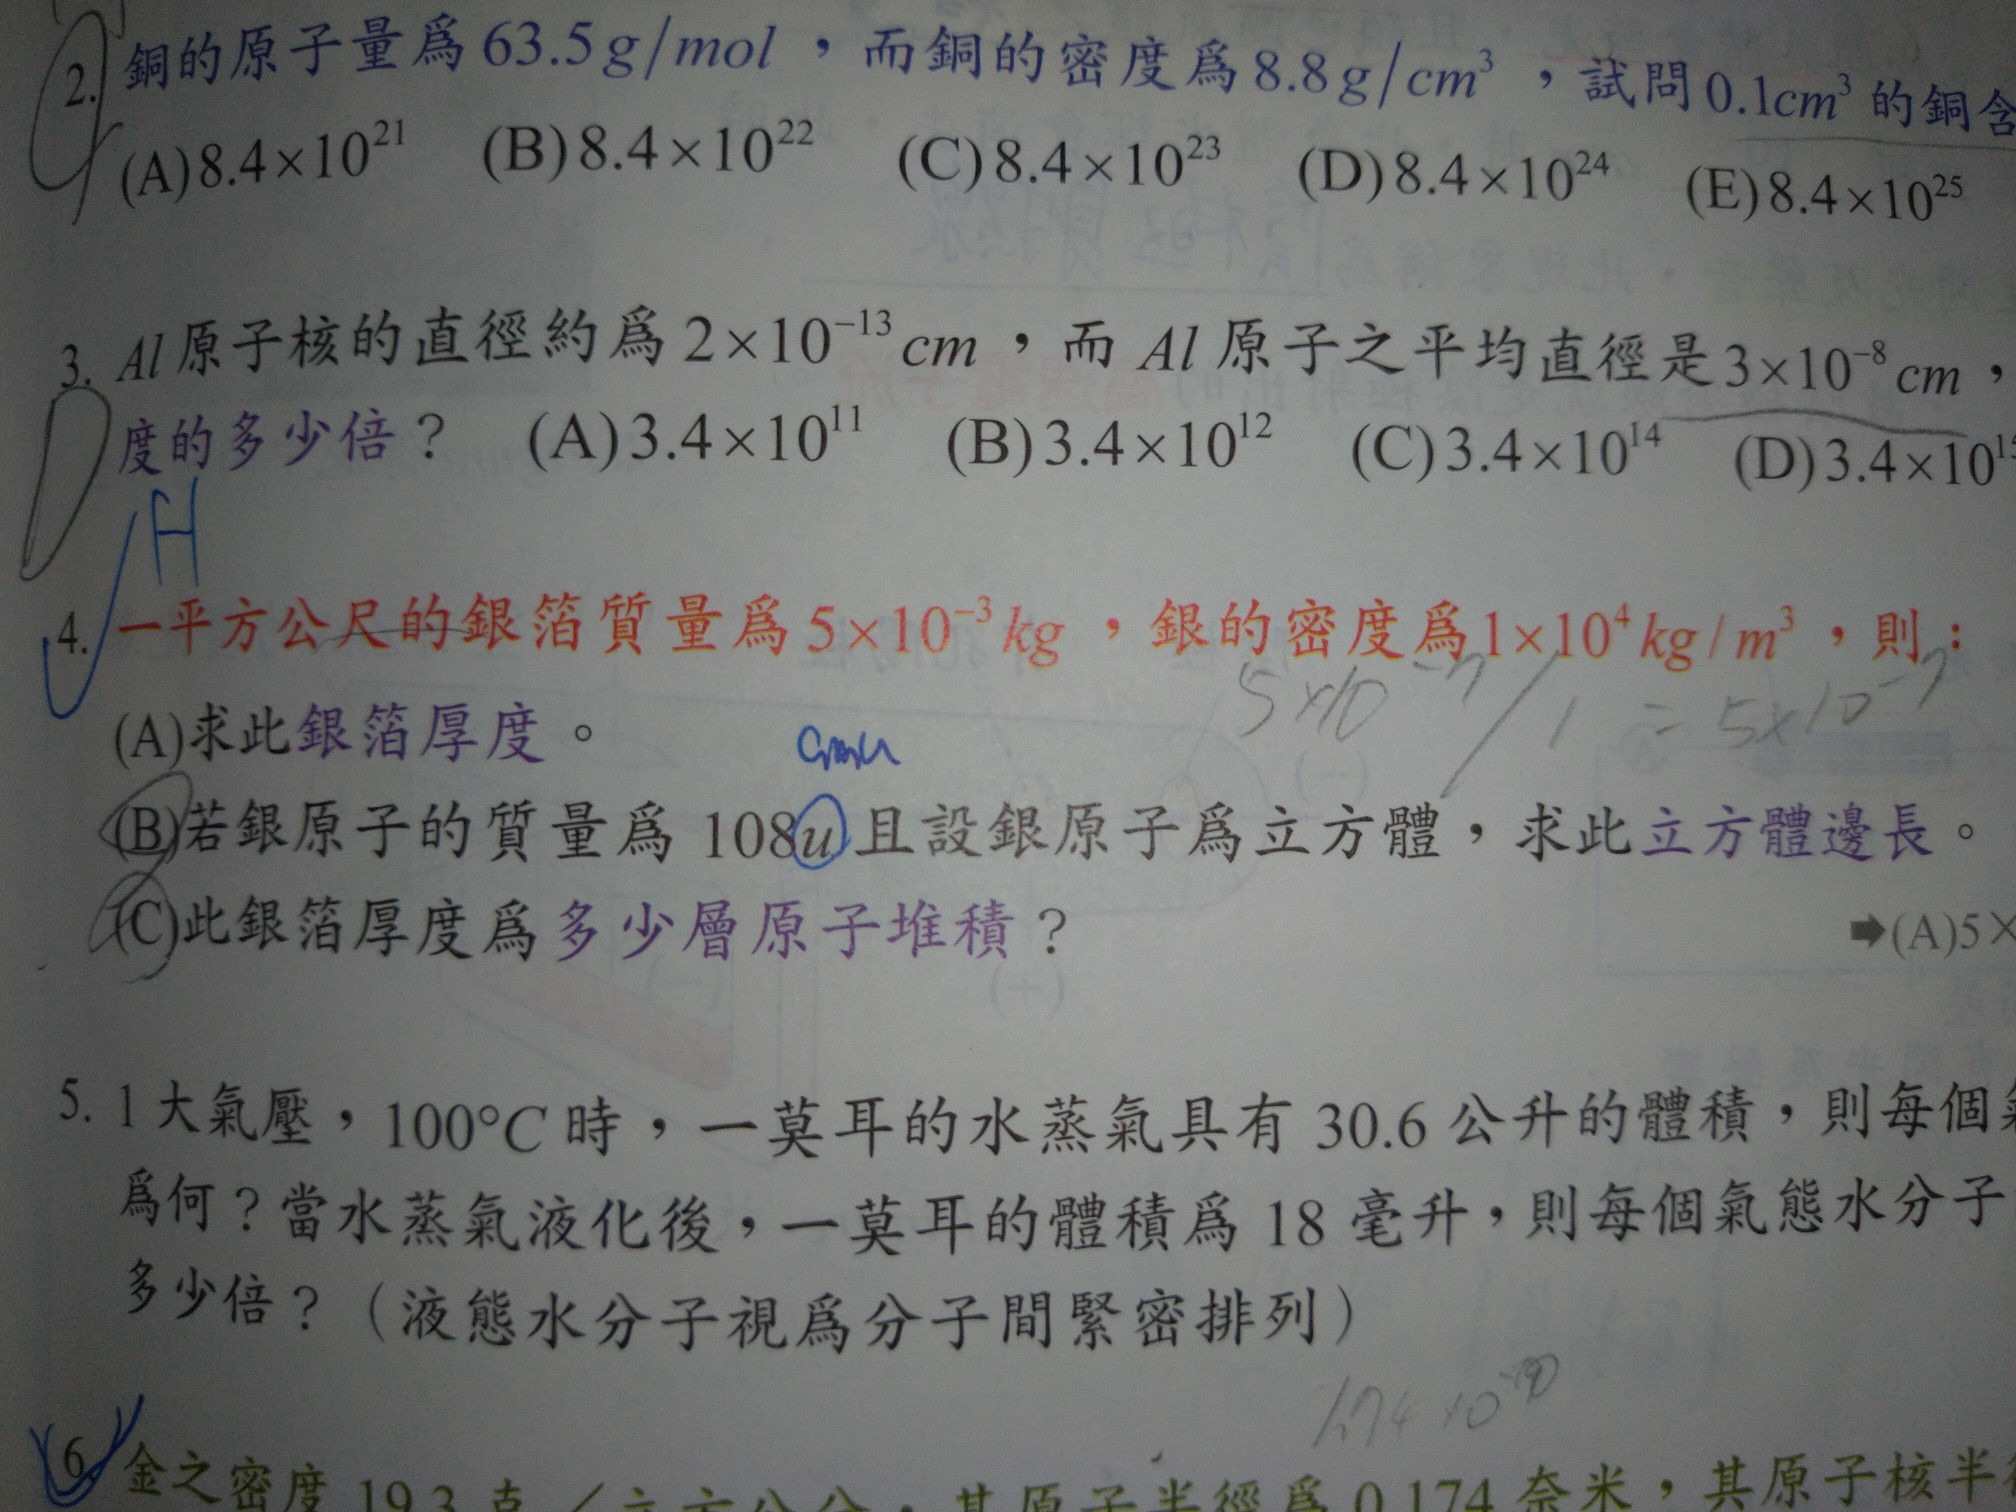 2. 銅的原子量為63.5g/mol，而銅的密度為8.8g/cm³，試問0.1cm³的銅含
(A)8.4×10²¹ (B)8.4×10²² (C)8.4×10²³ (D)8.4×10²⁴ (E)8.4×10²⁵
3. Al原子核的直徑約為2×10⁻¹³cm，而Al原子之平均直徑是3×10⁻⁸cm，
度的多少倍？ (A)3.4×10¹¹ (B)3.4×10¹² (C)3.4×10¹⁴ (D)3.4×10¹⁵
H
4. 一平方公尺的銀箔質量為5×10⁻³kg，銀的密度為1×10⁴kg/m³，則：
5×10⁻⁷/1=5×10⁻⁷
(A)求此銀箔厚度。
(B)若銀原子的質量為108u且設銀原子為立方體，求此立方體邊長。
(C)此銀箔厚度為多少層原子堆積？
➡(A)5×
5. 1大氣壓，100°C時，一莫耳的水蒸氣具有30.6公升的體積，則每個氣
為何？當水蒸氣液化後，一莫耳的體積為18毫升，則每個氣態水分子
多少倍？（液態水分子視為分子間緊密排列）
6. 金之密度19.3克/立方公分，其原子半徑為0.174奈米，其原子核半徑